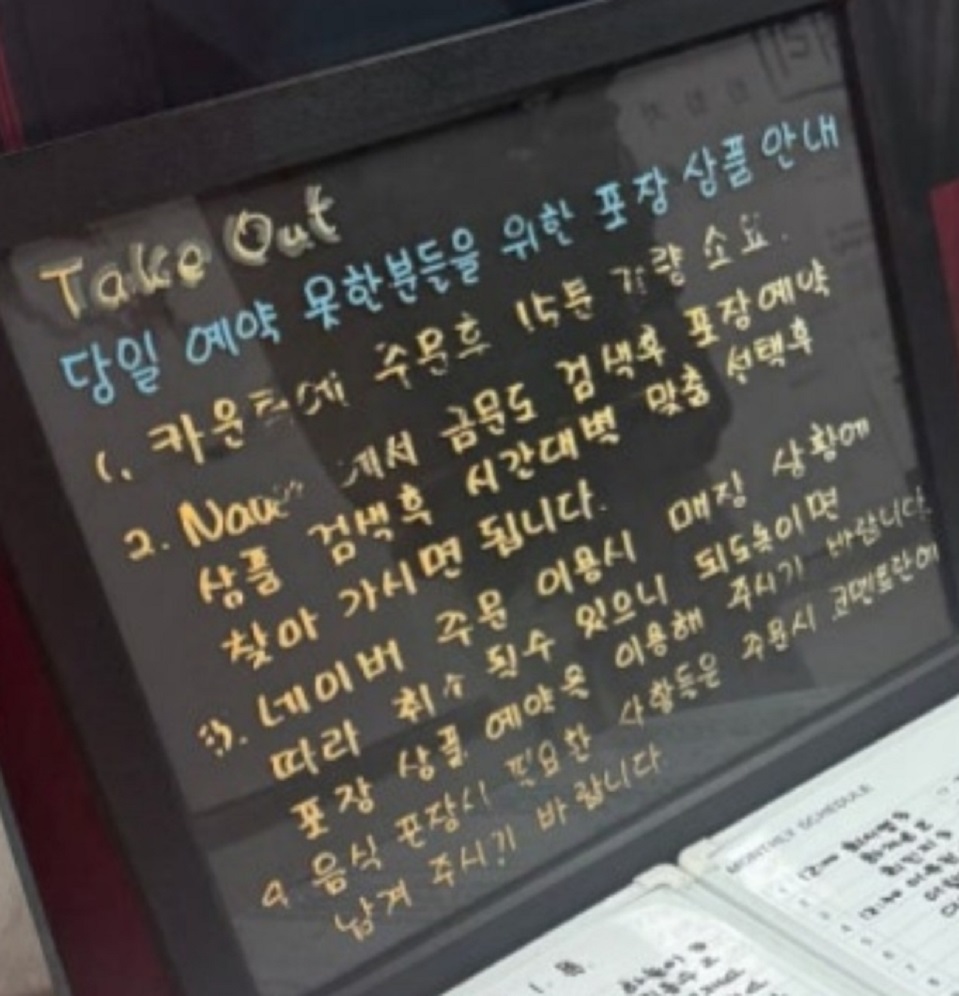 Take Out
당일 예약 못한분들을 위한 포장 상품 안내
1. 카운터에 주문후 15분 가량 소요.
2. Naver 에서 금문도 검색후 포장예약
상품 검색후 시간대별 맞춤 선택후
찾아 가시면 됩니다.
3. 네이버 주문 이용시 매장 상황에
따라 취소 될수 있으니 되도록이면
포장 상품 예약을 이용해 주시기 바랍니다.
4. 음식 포장시 필요한 사항들은 주문시 코멘트란에
남겨 주시기 바랍니다
MONTHLY SCHEDULE